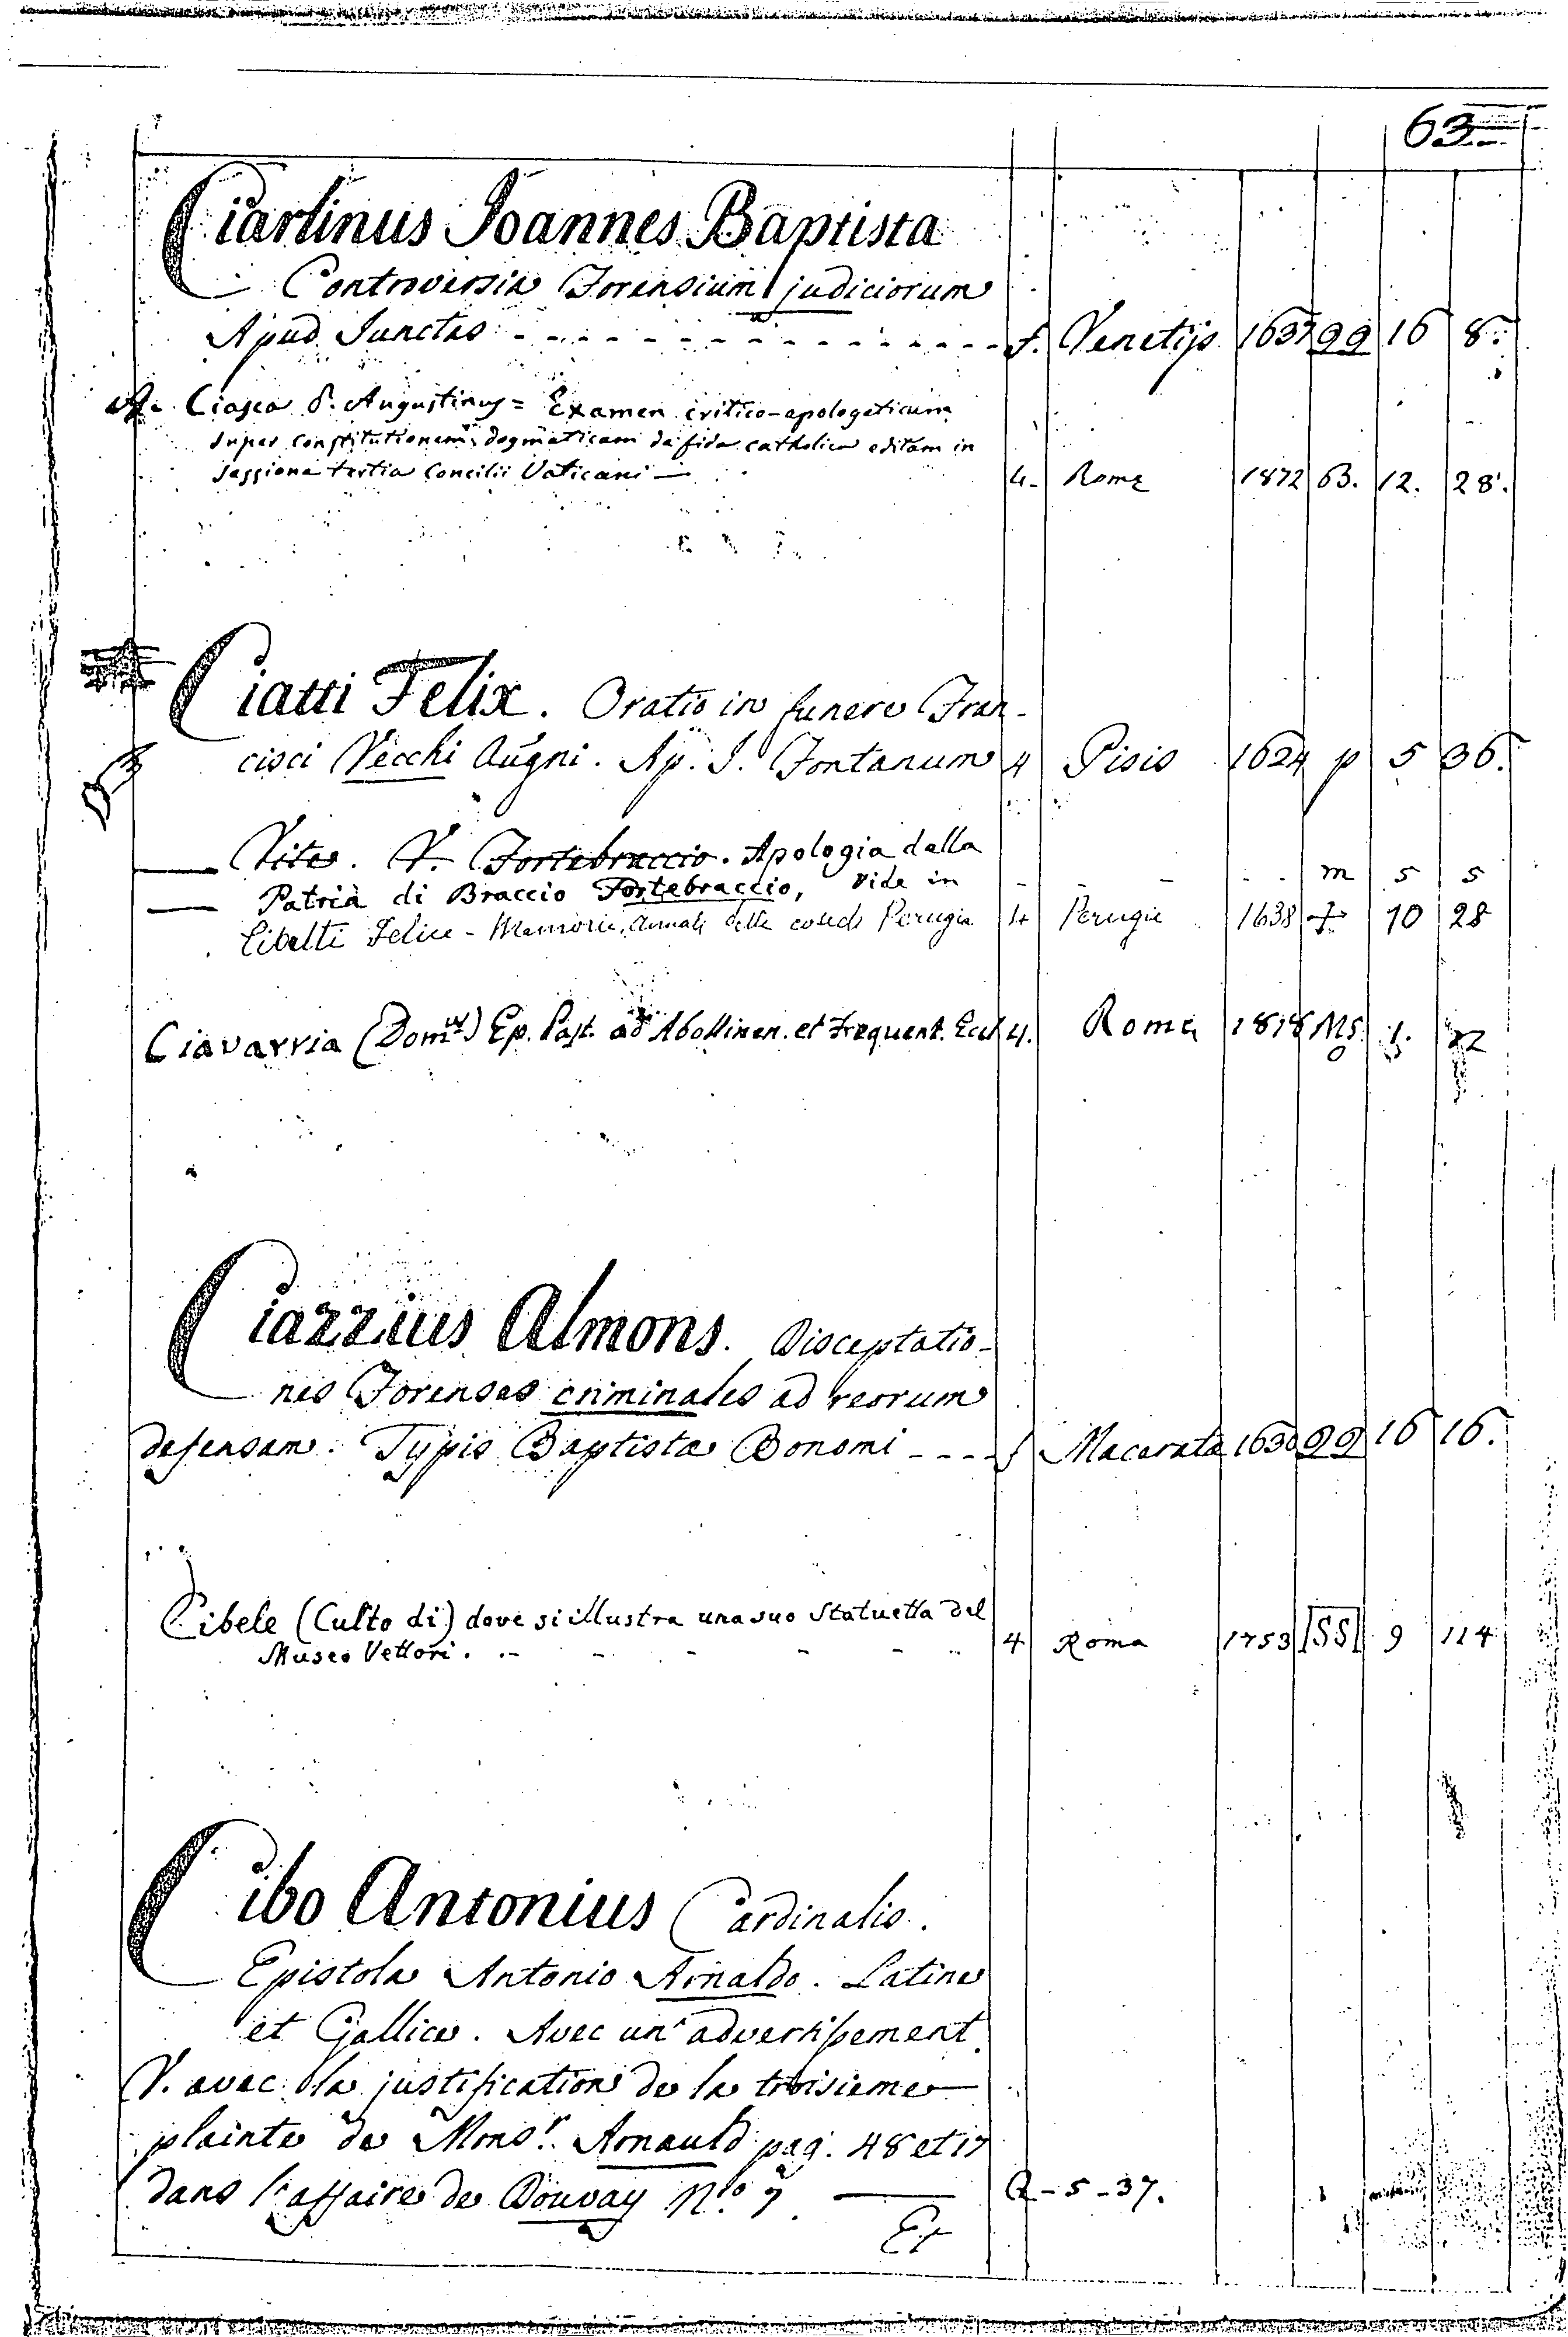 63
Ciarlinus Joannes Baptista
Controversiæ Forensium judiciorum
Apud Junctas - - - - - - - - - - - - - - - f. Venetijs 1637 99 16 8.
Ciasca P. Augustinus = Examen critico-apologeticum
super constitutionem dogmaticam de fide catholica editam in
sessione tertia Concilii Vaticani — 4. Romæ 1872 63. 12. 28.
Ciatti Felix. Oratio in funere Fran-
cisci Vecchi Augni. Ap. J. Fontanum 4 Pisis 1624 p 5 36.
— Vite. V. Fortebraccio. Apologia della
— Patria di Braccio Fortebraccio, vide in - - - - - m 5 5
Cibelli Felice - Memorie, Annali delle Perugia 4 Perugie 1638 10 28
Ciavarria (Domus) Ep. Past. ad Abollinen. et Frequent. Eccl 4. Roma 1818 MS. 1. 22
Ciazzius Almons. Disceptatio-
nes Forenses criminales ad reorum
defensam. Typis Baptistæ Bonomi - - - - f Macerata 1630 99 16 16.
Cibele (Culto di) dove si illustra una suo Statuetta del
Museo Vettori. - - - - - 4 Roma 1753 SS 9 114
Cibo Antonius Cardinalis.
Epistola Antonio Arnaldo. Latine
et Gallice. Avec un advertissement.
V. avec la justification de la troisieme
plainte de Monsr. Arnauld pag. 48 et 17
dans l'affaire de Douvay N.o 7 — Q - 5 - 37.
Et